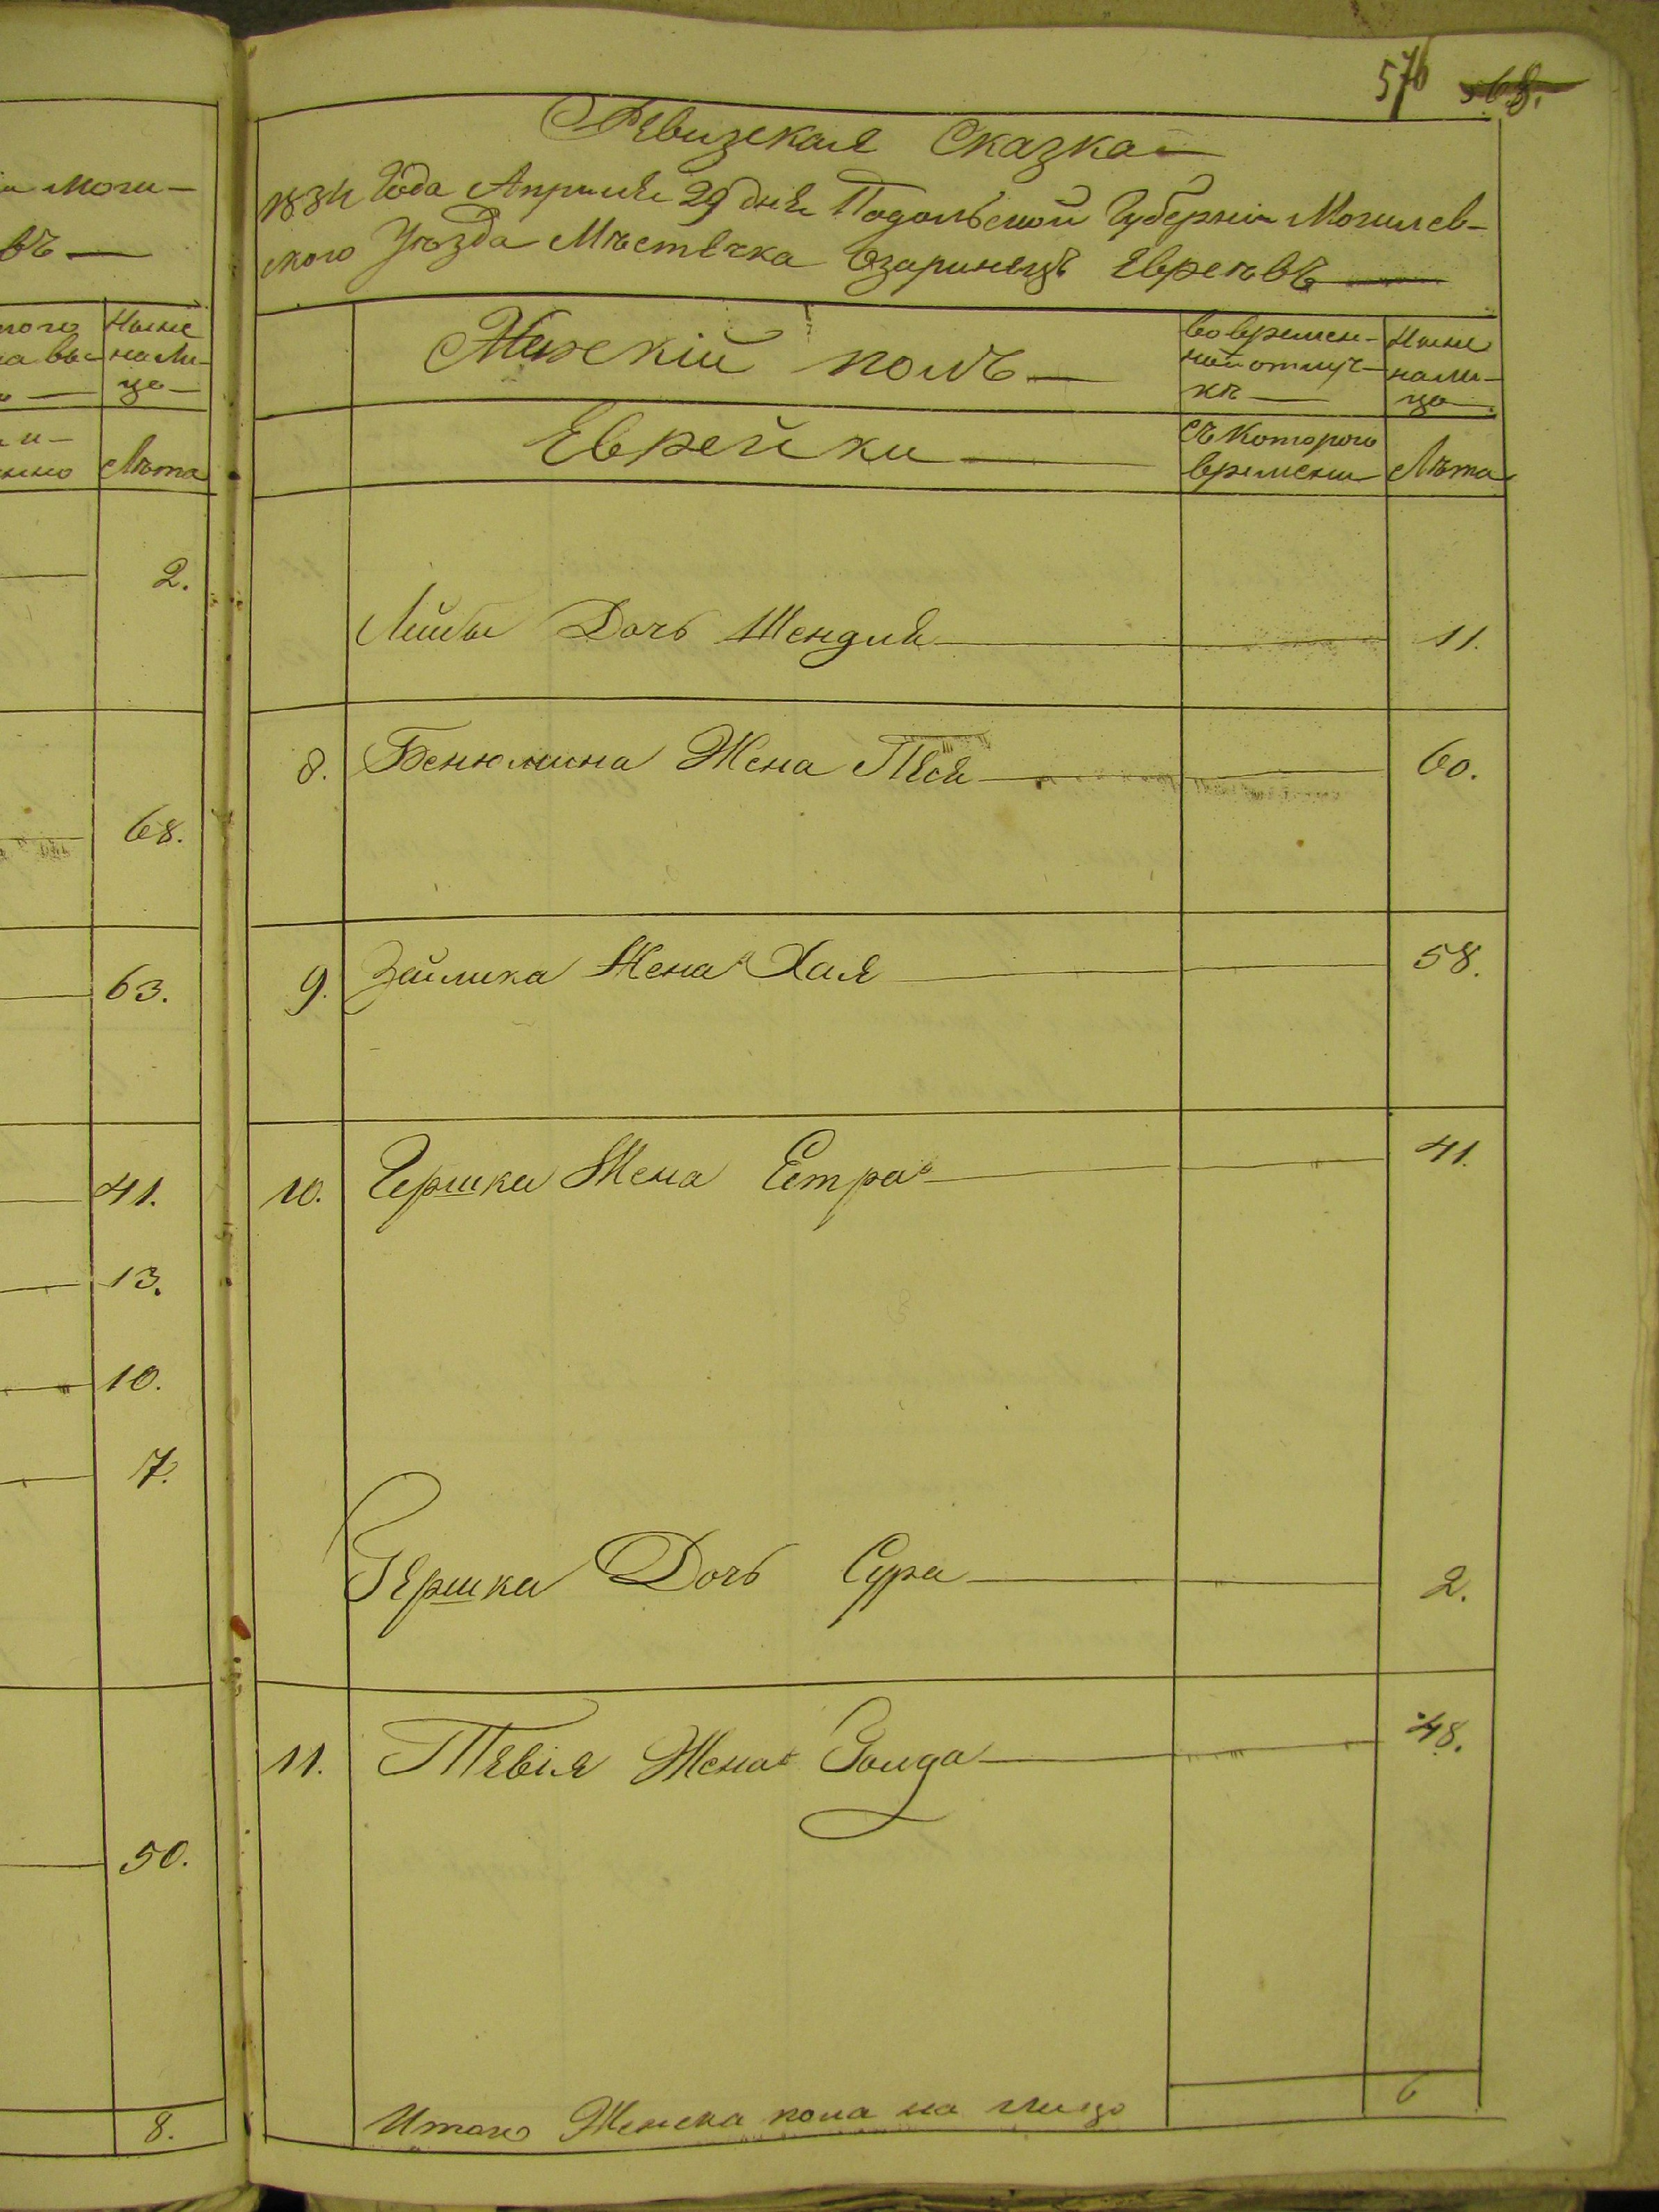 576 568.
Ревизская Сказка
1834 Года Апреля 29 дня Подольской Губерніи Могилев-
ского Уѣзда Мѣстечка Озаринецъ Евреѣвъ
Женскій полъ
во времен-
ной отлуч-
кѣ
Ныне
на ли-
цо
Еврейки
съ Которого
времени
Лѣта
Лейбы Дочь Шендля 11.
8. Бенюмина Жена Песя 60.
9. Зейлика Жена Хая 58.
10. Гершка Жена Естра 41.
Гершка Дочь Сура 2.
11. Тевія Жена Голда 48.
Итого Женска пола на лицо 6
Моги-
въ
Ныне
на Ли-
цо
Лѣта
2.
68.
63.
41.
13.
10.
7.
50.
8.